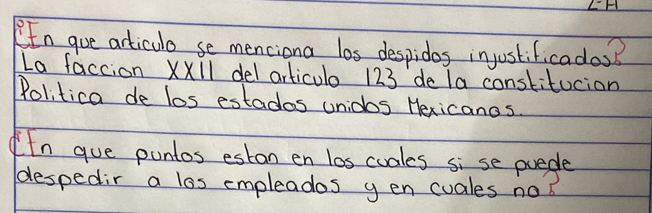 2-A
¿En que articulo se menciona los despidos injustificados?
La faccion XXII del articulo 123 de la constitucion
Politica de los estados unidos Mexicanos.
¿En que puntos estan en los cuales si se puede
despedir a los empleados y en cuales no?